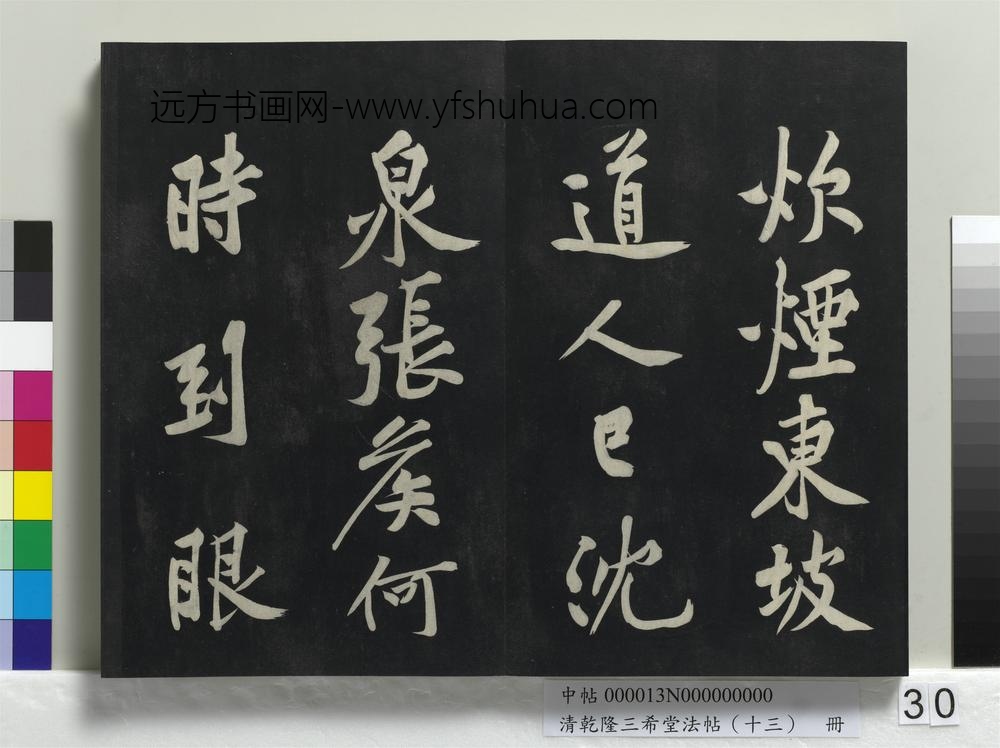 远方书画网-www.yfshuhua.com
炊煙東坡
道人已沈
泉張矦何
時到眼
中帖 000013N000000000
清乾隆三希堂法帖（十三） 冊
30